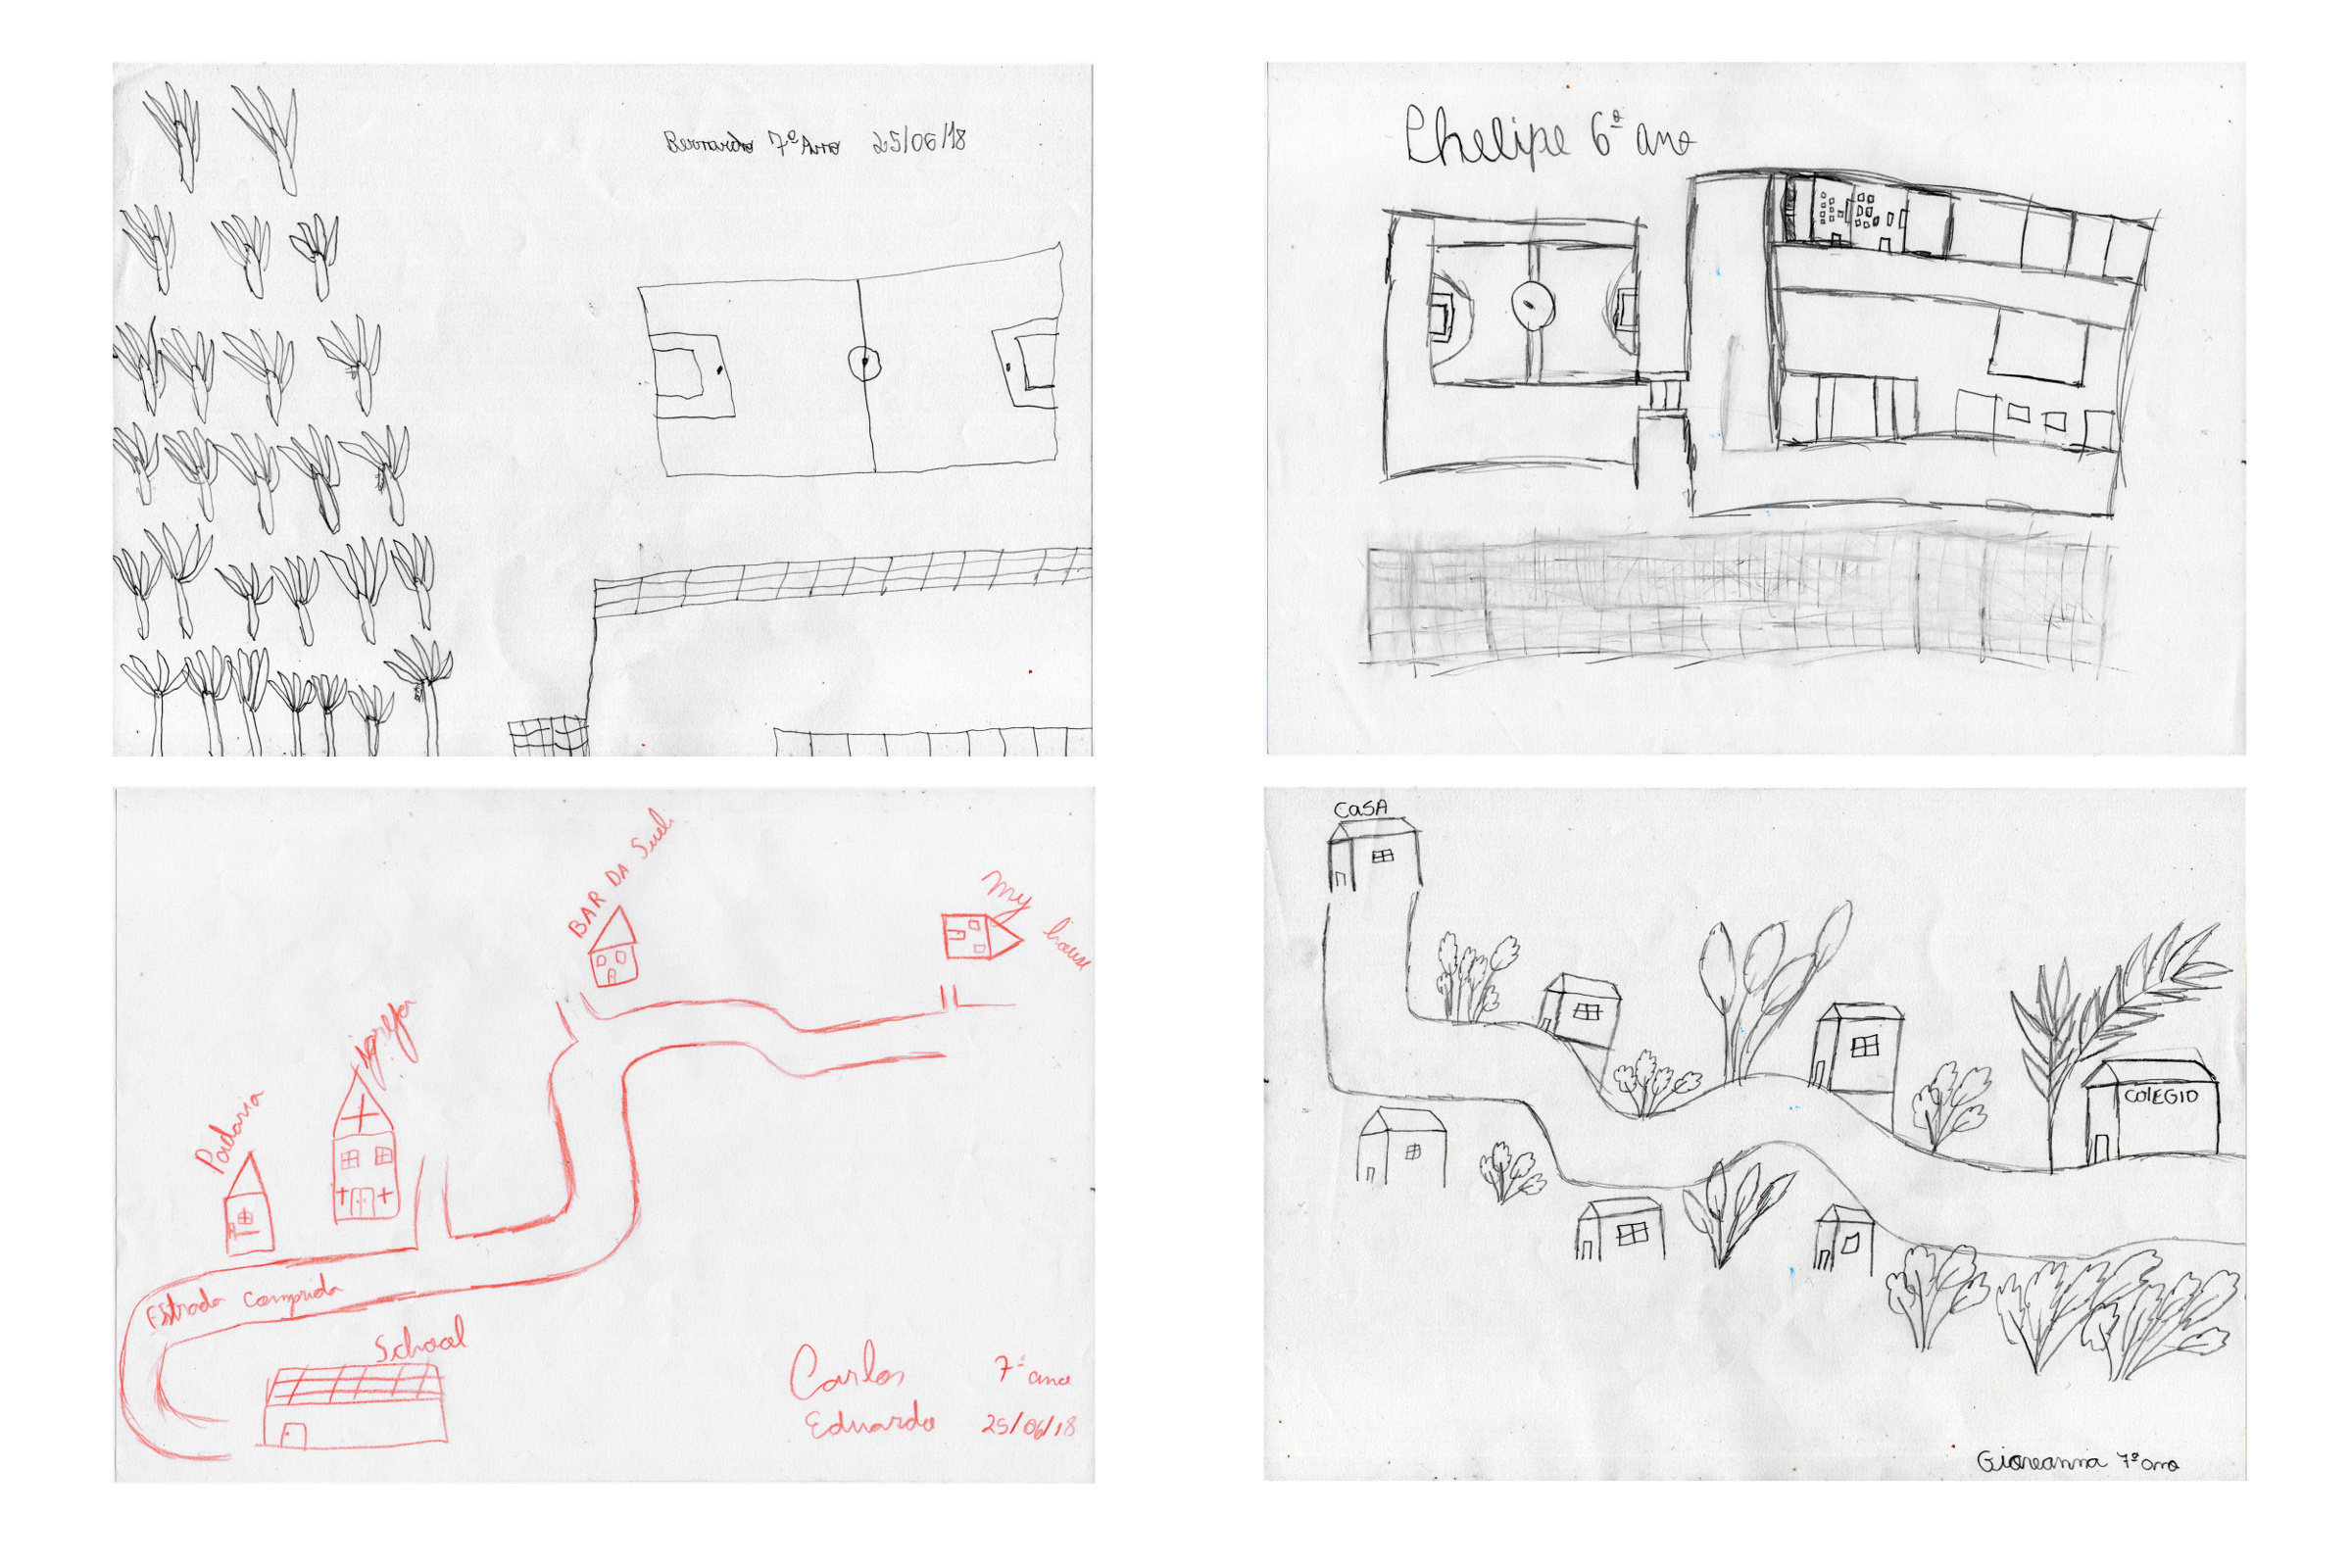 Bernardo 7º Ano 25/06/18
Phelipe 6º ano
BAR DA Sueli
my house
igreja
Padaria
Estrada comprida
School
Carlos 7º ano
Eduardo 25/06/18
CASA
COLEGIO
Gioveanna 7º ano